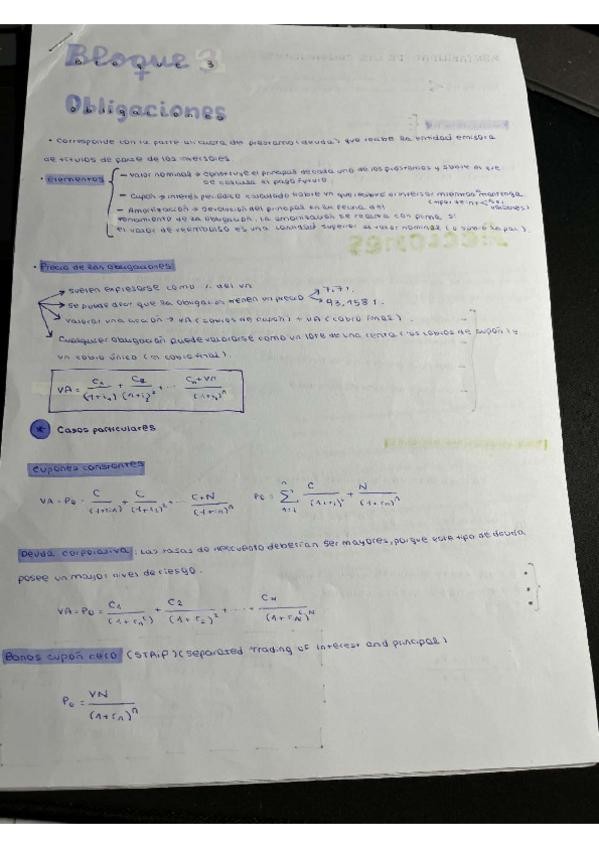 Bloque 3
Obligaciones
• Corresponde con la parte alicuota del préstamo (deuda) que recibe la entidad emisora
de títulos de parte de los inversores.
• elementos
- valor nominal → constituye el principal de cada uno de los préstamos y sobre el que
se calcula el pago futuro.
- Cupón → interés periódico calculado sobre vn que recibe el inversor mientras mantenga
- Amortización → devolución del principal en la fecha del
vencimiento de la obligación. La amortización se realiza con prima si
el valor de reembolso es una cantidad superior al valor nominal (o sobre la par).
• Precio de las obligaciones
suelen expresarse como % del vn
se puede decir que la obligación tienen un precio
93,158%
valorar una acción → VA (cobros de cupón) + VA (cobro final).
Cualquier obligación puede valorarse como un lote de una renta (los cobros de cupón) y
un cobro único (el cobro final).
VA = C₁/(1+i₁) + C₂/(1+i₂)² + ... Cₙ+VN/(1+rₙ)ⁿ
* Casos particulares
Cupones constantes
VA = P₀ = C/(1+r₁) + C/(1+r₂)² + ... C+N/(1+rₙ)ⁿ P₀ = Σ C/(1+r₁)ᵗ + N/(1+rₙ)ⁿ
Deuda corporativa: Las tasas de descuento deberían ser mayores, porque este tipo de deuda
posee un mayor nivel de riesgo.
VA = P₀ = C₁/(1+r₁ᶜ) + C₂/(1+r₂)² + ... + Cₙ/(1+rᶜN)ᴺ
Bonos cupón cero (STRIP) (separated trading of interest and principal)
P₀ = VN/(1+rₙ)ⁿ